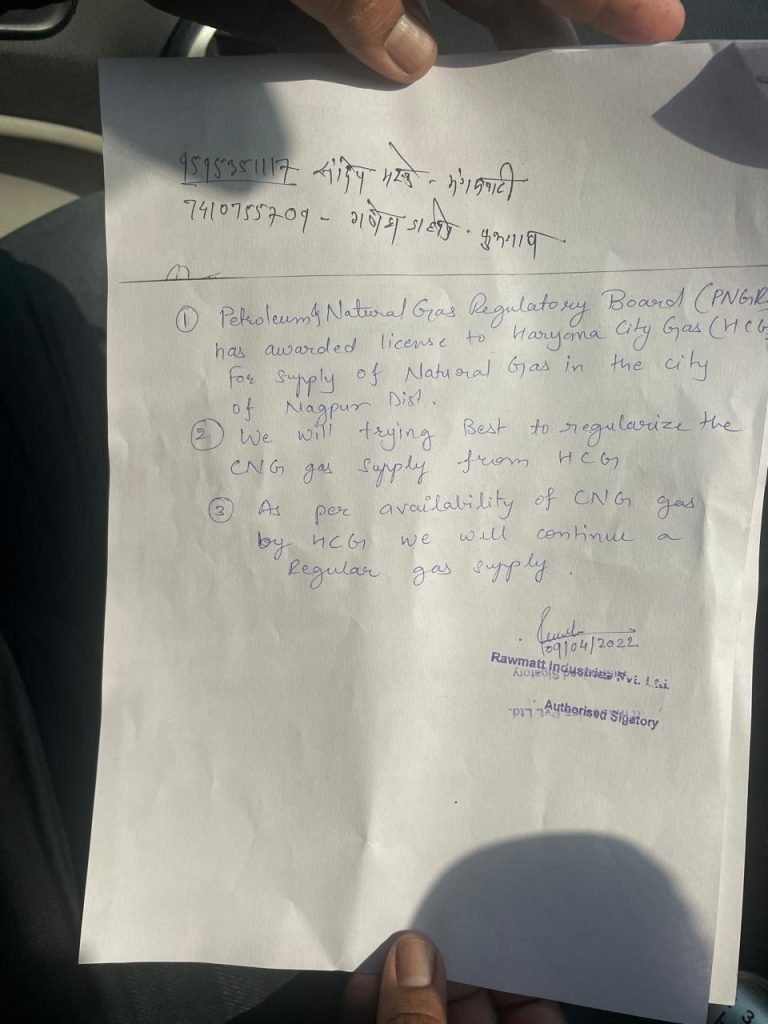 9595351117 संदीप
7410755709 - गणेश
① Petroleum & Natural Gas Regulatory Board (PNGR
has awarded license to Haryana City Gas (HCG
For supply of Natural Gas in the city
of Nagpur Dist.
② We will trying Best to regularize the
CNG gas supply from HCG
③ As per availability of CNG gas
by HCG we will continue a
Regular gas supply.
09/04/2022
Rawmatt Industries Pvt. Ltd.
Authorised Sigatory